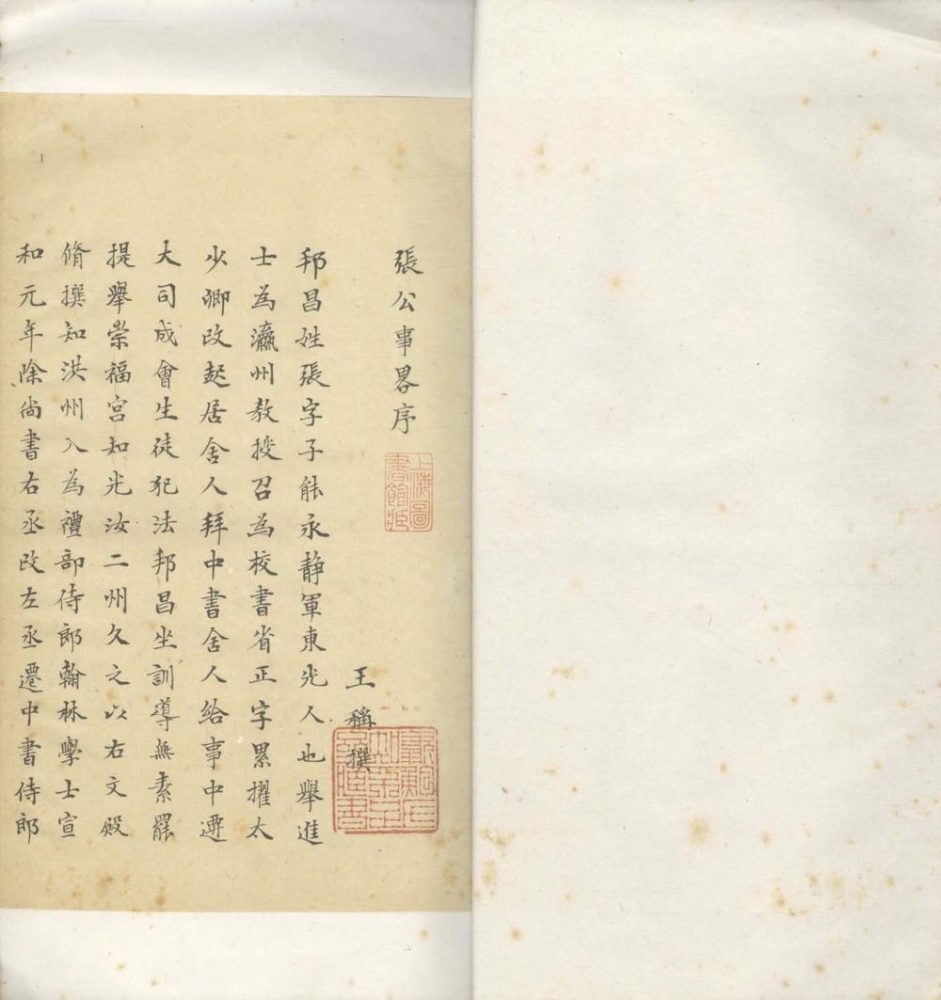 張公事畧序
上海圖書館藏
王稱撰
邦昌姓張字子能永静軍東光人也舉進
士為瀛州教授召為校書省正字累擢太
少卿改起居舍人拜中書舍人給事中遷
大司成會生徒犯法邦昌坐訓導無素罷
提舉崇福宮知光汝二州久之以右文殿
脩撰知洪州入為禮部侍郎翰林學士宣
和元年除尚書右丞改左丞遷中書侍郎